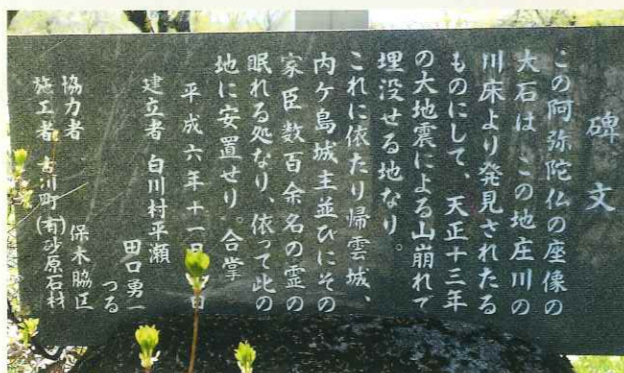 碑文
この阿弥陀仏の座像の
大石は この地庄川の
川床より発見されたる
ものにして、天正十三年
の大地震による山崩れて
埋没せる地なり。
これに依たり帰雲城、
内ケ島城主並びにその
家臣数百余名の霊の
眠れる処なり、依って此の
地に安置せり。合掌
平成六年十一月 日
建立者 白川村平瀬
田口勇一
つる
協力者 保木脇区
施工者 古川町(有)砂原石材